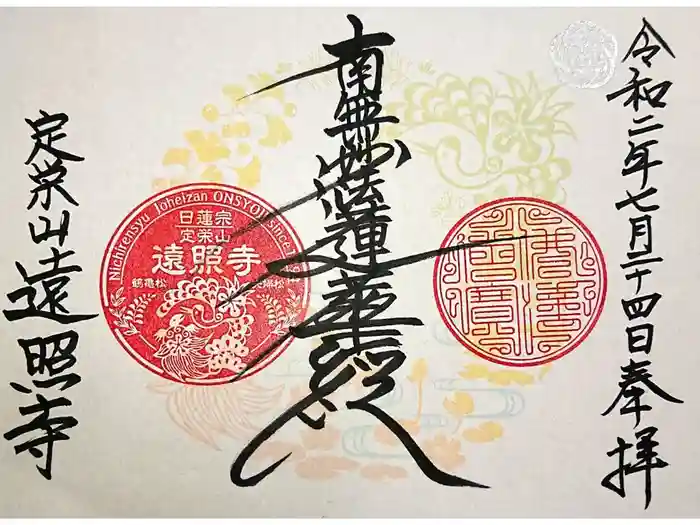 令和二年七月二十四日奉拝
南無妙法蓮華経
定栄山遠照寺
Nichirensyu Joheizan ONSYOJI since
日蓮宗
定栄山
遠照寺
鶴亀松